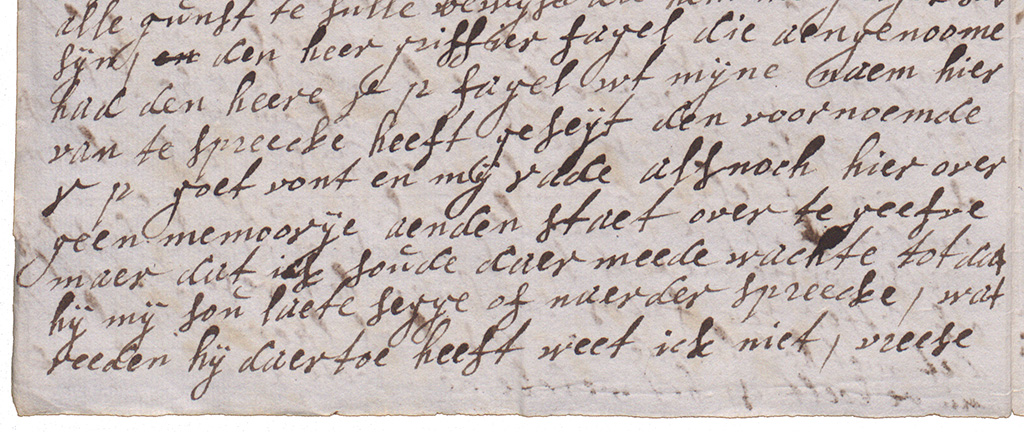 alle gunst te sulle
syn, en den heer griffier fagel die aengenoome
had den heere r p fagel wt mijne naem hier
van te spreecke heeft geseijt den voornoemde
r p goet vont en mij rade alsnoch hier over
geen memoorije aenden staet over te geefve
maer dat ick soude daer meede wachte tot dat
hij mij sou laete segge of naerder spreecke, wat
reeden hij daertoe heeft weet ick niet, vreese